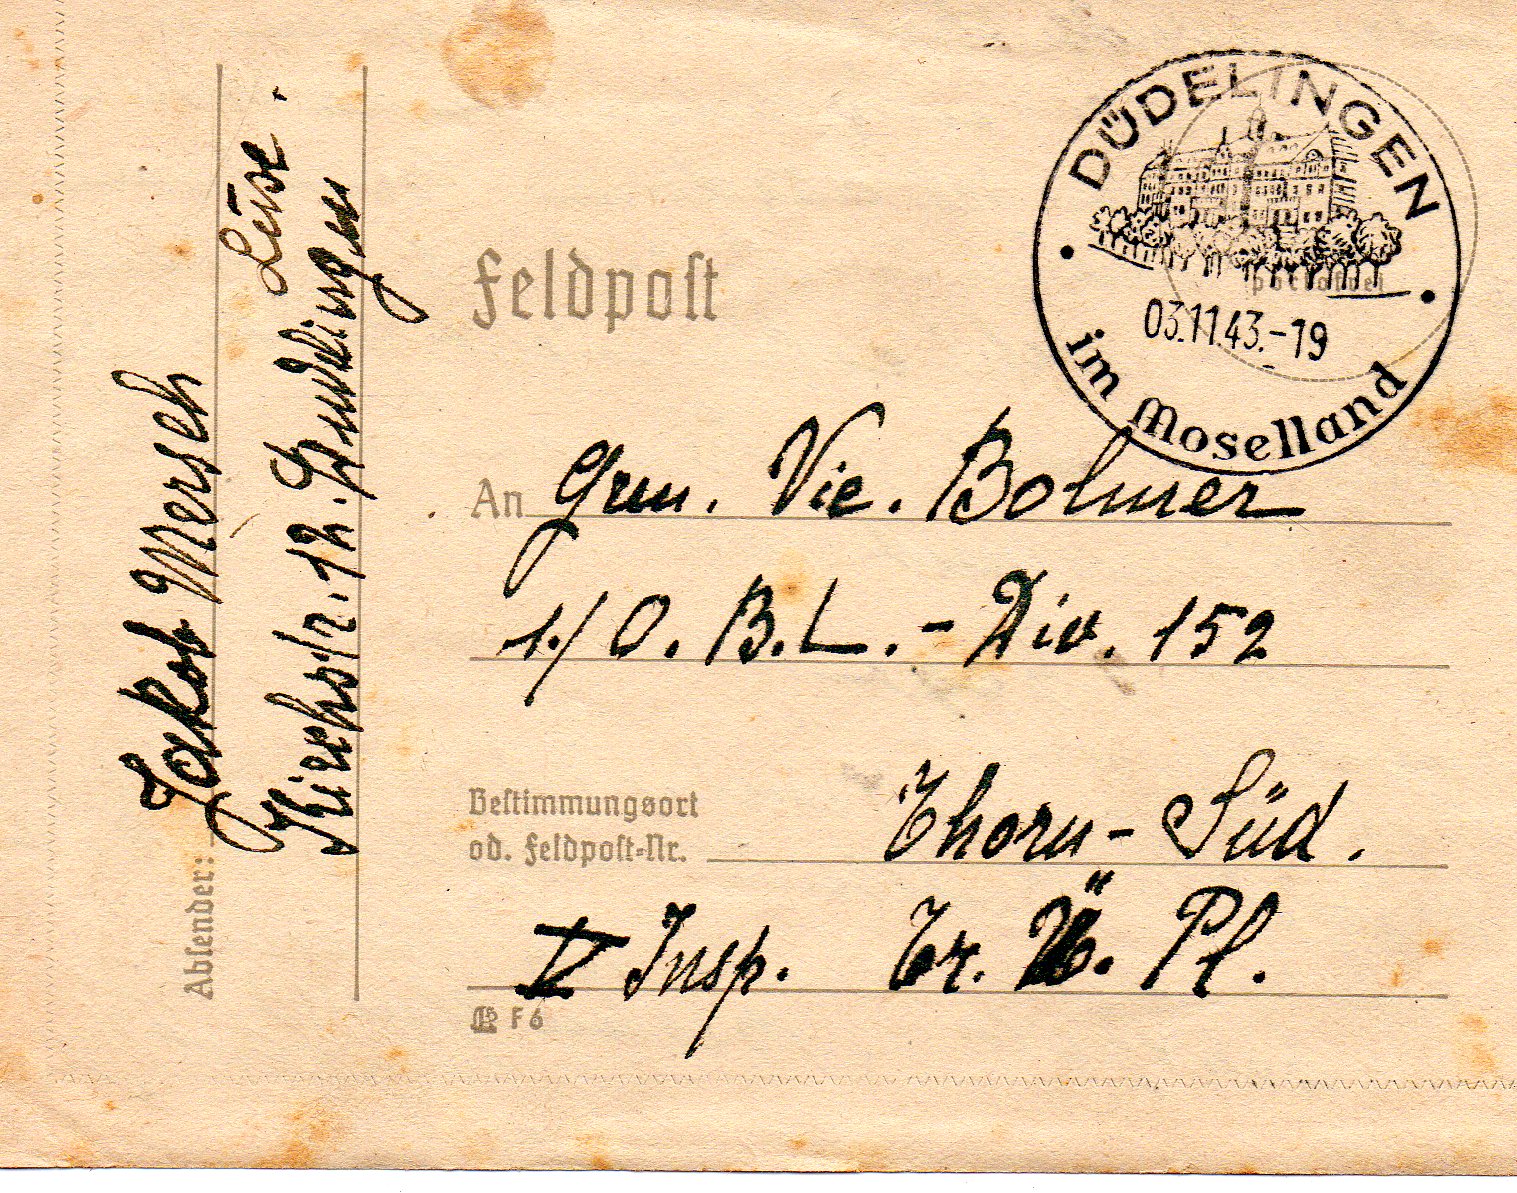 DÜDELINGEN
03.11.43.-19
im Moselland
Feldpost
An Gren. Vic. Bolmer
1./O.B.L.-Div. 152
Bestimmungsort
od. Feldpost-Nr.
Thorn-Süd.
V Insp. Tr. Ü. Pl.
F 6
Absender:
Jakob Mersch
Kirchstr. 12.